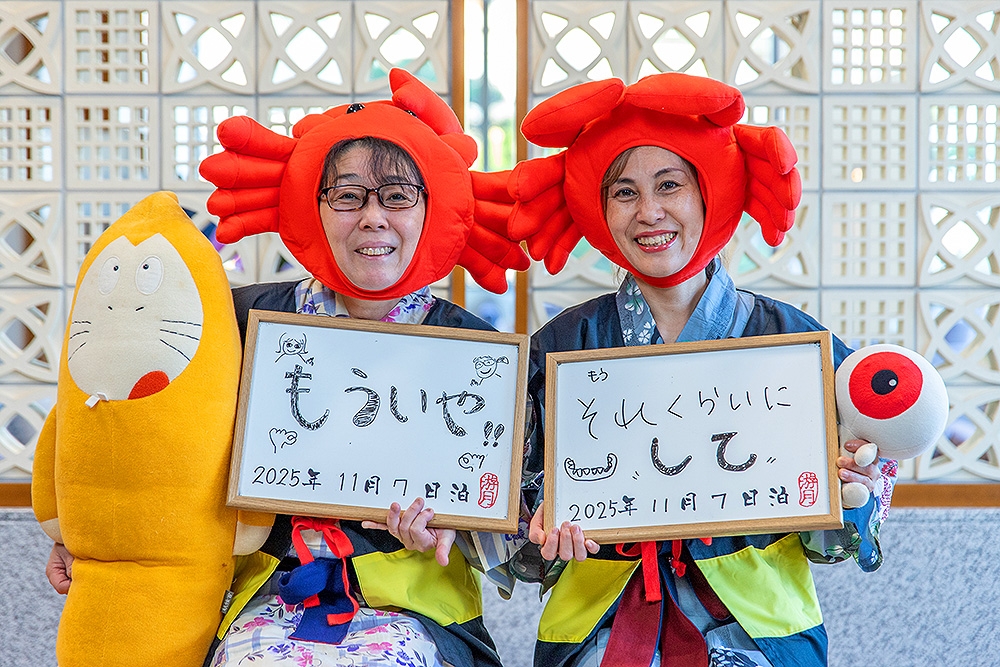 もういや!!
2025年 11月 7日泊
游月
もう
それくらいに
して
2025年 11月 7日泊
游月